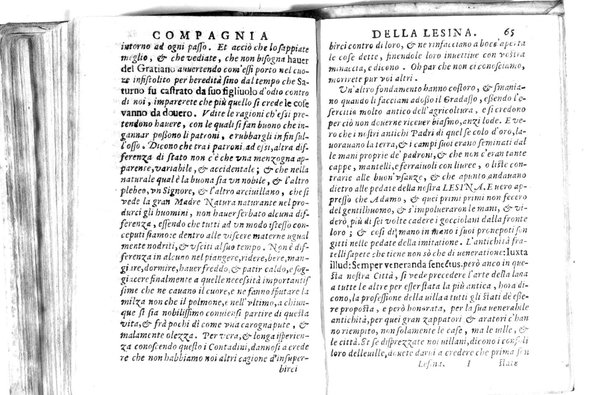 COMPAGNIA
intorno ad ogni passo. Et acciò che lo sappiate
meglio, & che vediate, che non bisogna hauer
del Gratiano auuertendo com'essi porto nel cuo-
re infistolito per heredità sino dal tempo che Sa-
turno fu castrato da suo figliuolo d'odio contro
di noi, imparerete che più quello si crede le cose
vanno da douero. Vdite le ragioni ch'essi pre-
tendono hauere, con le quali si fan buono che in-
gannar possono li patroni, infin sul-
l'osso. Dicono che tra i patroni, ad essi, altra dif-
ferenza di stato non c'è che vna menzogna ap-
parente, variabile, & accidentale; & che nella
naturale qual è la buona sia vn nobile, & l'altro
plebeo, vn Signore, & l'altro arciuillano, che si
vede la gran Madre Natura naturante nel pro-
durci gli huomini, non hauer serbato alcuna dif-
ferenza, essendo che tutti ad vn modo istesso con-
cepiuti siamo dentro alle viscere materne vgual-
mente nodriti, & vsciti al suo tempo. Non è dif-
ferenza in alcuno nel piangere, ridere, bere, man-
giare, dormire, hauer freddo, & patir caldo, e sog-
giacere finalmente a quelle necessità importantis-
sime che ne cauano il cuore, e ne fanno spuntare la
milza non che il polmone, e nell'vltimo, a chiun-
que si sia nobilissimo conuien sputar fuori la
vita, & frà pochi dì come vna carognapute, &
malamente olezza. Per vera, & longa isperien-
za conoscendo questo i Contadini, dannosi a crede
re che non habbiamo noi altri cagione d'insuper-
birci
DELLA LESINA. 65
birci contro di loro, & ne rinfacciano a bocc'aperta
le cose dette, finendole loro inuettiue con vna
minaccia, e dicono. Oh par che non ci conosciamo,
morirete pur voi altri.
Vn'altro fondamento hanno costoro, & smania-
no quando li facciam adosso il Gradasso, essendo l'e-
sercitio molto antico dell'agricoltura, e si credono
perciò non douerne riceuer biasmo, anzi lode. E ve-
ro che i nostri antichi Padri di quel se colo d'oro, la-
uorauano la terra, & i campi suoi erano seminati dal
le mani proprie de' padroni, & che non c'eran tante
cappe, mantelli, e ferraiuoli con liuree, o listè con-
trarie alle buon'vsanze, & che andauano punto
dietro alle pedate della nostra LESINA. E vero ap-
presso che Adamo, & quei primi primi non fecero
del gentilhuomo, & s'impoluerauano le mani, & vi-
dero più di due volte cadere gocciolando dalla fronte
loro; & così di mano in mano i suoi pronepoti son
gitti nelle pedate della imitatione. L'antichità fra-
telli sapete che tiene non sò che di veneratione: Iuxta
illud: Semper veneranda senectus. però anco in que-
sta nostra Città, si vede precedere l'arte della lana
a tutte le altre per esser stata la più antica, hora di-
cono, la professione della uilla a tutti gli stati dè esse-
re preposta, e però honorata, per la sua venerabile
antichità, per cui gran zappatori & aratori han-
no riempito, non solamente le case, ma le uille, &
le città. Se se disprezzate noi uillani, dicono i consoli
loro delle uille, douete darui a credere che prima son
Lesina. I state